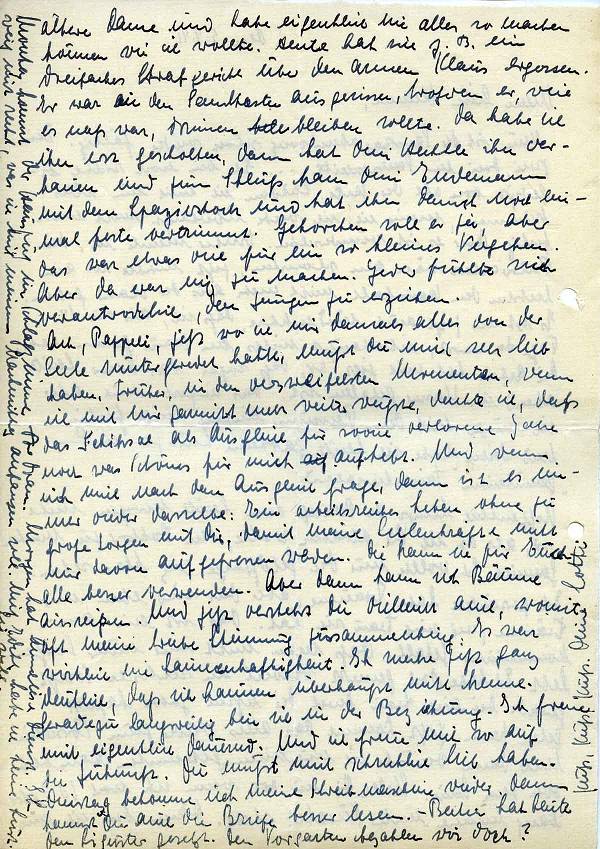 ältere Dame und habe eigentlich nie alles so machen
können wie ich wollte. Heute hat sie z. B. ein
dreifaches Strafgericht über den armen Klaus ergossen.
Er war an den Sandkasten ausgerissen, trotzdem er, weil
es naß war, drinnen bleiben sollte. Da habe ich
ihn erst gescholten, dann hat ihn ver-
hauen und zum Schluß kam dein
mit dem Spazierstock und hat ihn damit noch ein-
mal feste vertrimmt. Gehorchen soll er ja, aber
das war etwas viel für ein so kleines Vergehen.
Aber da war nix zu machen. Jeder fühlte sich
verantwortlich, den Jungen zu erziehen.
Ach, Pappeli, jetzt wo ich mir damals alles von der
Seele runtergeredet hatte, mußt du mich sehr lieb
haben. Früher, in den verzweifelsten Momenten, wenn
ich mit mir garnicht mehr weiter wußte, dachte ich, daß
das Schicksal als Ausgleich für soviel verlorene Jahre
noch was Schönes für mich aufhebt. Und wenn
ich mich nach dem Ausgleich frage, dann ist es im-
mer wieder dasselbe: Ein arbeitsreiches Leben ohne zu
große Sorgen mit Dir, damit meine Seelenkräfte nicht
nur davon aufgefressen werden. Die kann ich für Euch
alle besser verwenden. Aber dann kann ich Bäume
ausreißen. Und jetzt verstehst Du vielleicht auch, womit
oft meine trübe Stimmung zusammenhing. Es war
wirklich nie Launenhaftigkeit. Ich merke jetzt ganz
deutlich, daß ich Launen überhaupt nicht kenne.
Geradezu langweilig bin ich in der Beziehung. Ich freue
mich eigentlich dauernd. Und ich freue mich so auf
die Zukunft. Du mußt mich schrecklich lieb haben.
Dienstag bekomme ich meine Schreibmaschine wieder, dann
kannst Du auch die Briefe besser lesen. – hat heute
den Liguster gesetzt. Den Vorgarten bezahlen wir doch?
kommt der ins Schlafzimmer dran. Morgen hat
weiß nicht recht, was ich mit meinem anfangen soll.
Kuß, Kuß, Kuß. Deine Lotti